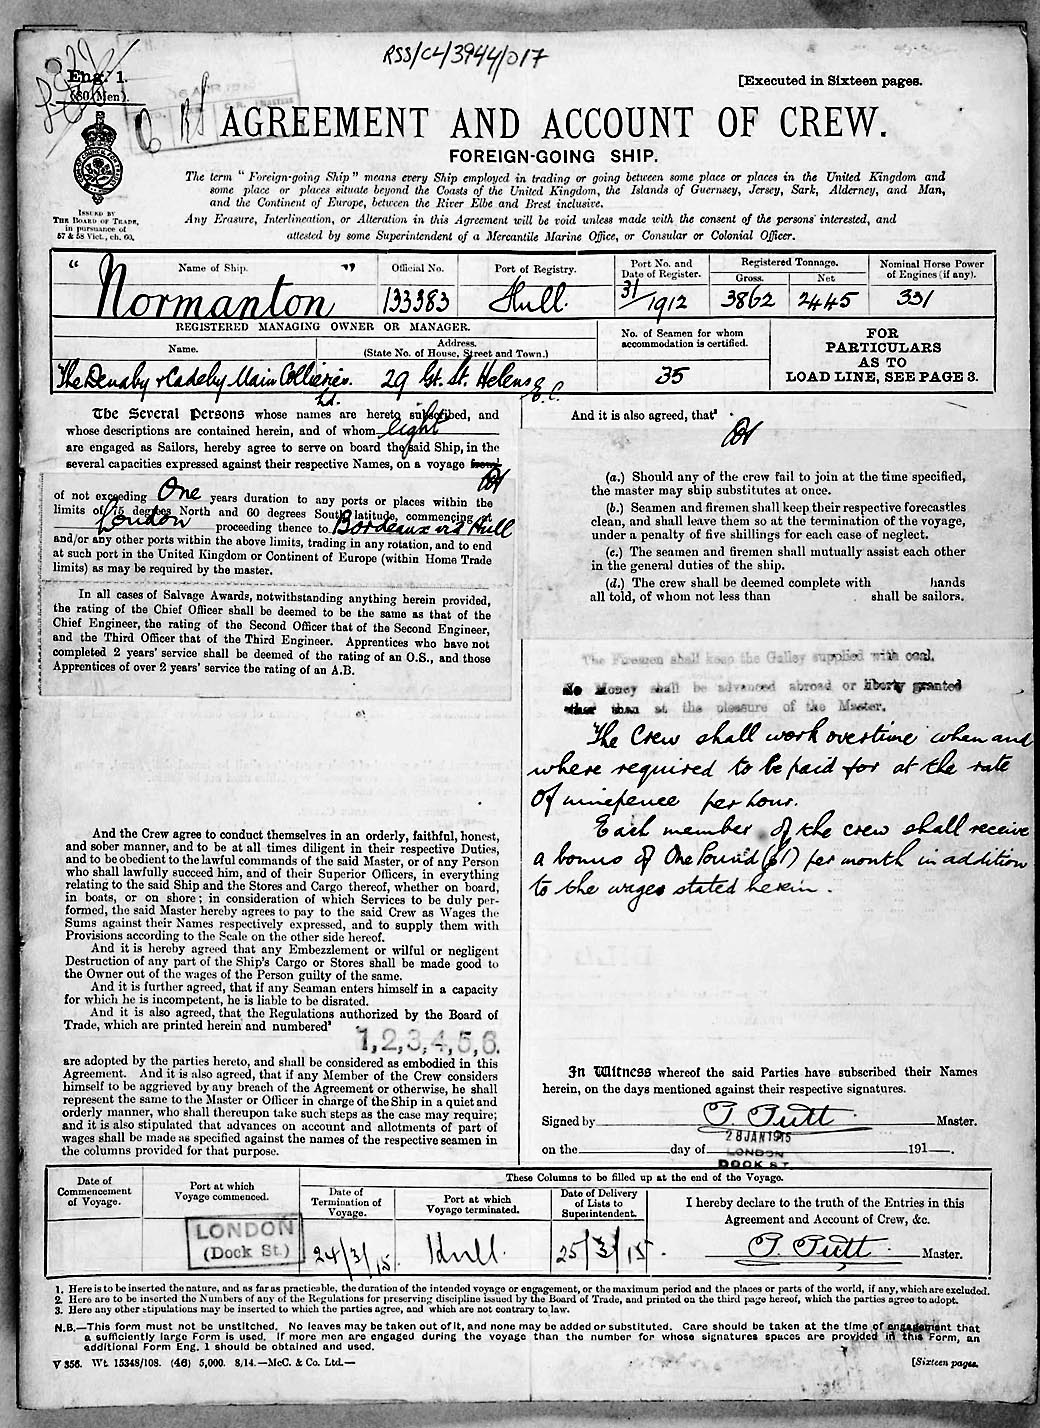 RSS/CL/3944/017
Eng. 1.
(80 Men).
[Executed in Sixteen pages.
AGREEMENT AND ACCOUNT OF CREW.
FOREIGN-GOING SHIP.
The term "Foreign-going Ship" means every Ship employed in trading or going between some place or places in the United Kingdom and
some place or places situate beyond the Coasts of the United Kingdom, the Islands of Guernsey, Jersey, Sark, Alderney, and Man,
and the Continent of Europe, between the River Elbe and Brest inclusive.
Any Erasure, Interlineation, or Alteration in this Agreement will be void unless made with the consent of the persons interested, and
attested by some Superintendent of a Mercantile Marine Office, or Consular or Colonial Officer.
ISSUED BY
THE BOARD OF TRADE,
in pursuance of
57 & 58 Vict., ch. 60.
Name of Ship. Official No. Port of Registry. Port No. and Date of Register. Registered Tonnage. Gross. Net Nominal Horse Power of Engines (if any).
"Normanton" 133383 Hull. 31/1912 3862 2445 331
REGISTERED MANAGING OWNER OR MANAGER.
Name. Address. (State No. of House, Street and Town.)
No. of Seamen for whom accommodation is certified.
The Denaby & Cadeby Main Collieries. Ld. 29 Gt. St. Helens E.C. 35
FOR
PARTICULARS
AS TO
LOAD LINE, SEE PAGE 3.
The Several Persons whose names are hereto subscribed, and
whose descriptions are contained herein, and of whom eight
are engaged as Sailors, hereby agree to serve on board the said Ship, in the
several capacities expressed against their respective Names, on a voyage from¹
of not exceeding One years duration to any ports or places within the
limits of 75 degrees North and 60 degrees South latitude, commencing at
London proceeding thence to Bordeaux via Hull
and/or any other ports within the above limits, trading in any rotation, and to end
at such port in the United Kingdom or Continent of Europe (within Home Trade
limits) as may be required by the master.
In all cases of Salvage Awards, notwithstanding anything herein provided,
the rating of the Chief Officer shall be deemed to be the same as that of the
Chief Engineer, the rating of the Second Officer that of the Second Engineer,
and the Third Officer that of the Third Engineer. Apprentices who have not
completed 2 years' service shall be deemed of the rating of an O.S., and those
Apprentices of over 2 years' service the rating of an A.B.
And the Crew agree to conduct themselves in an orderly, faithful, honest,
and sober manner, and to be at all times diligent in their respective Duties,
and to be obedient to the lawful commands of the said Master, or of any Person
who shall lawfully succeed him, and of their Superior Officers, in everything
relating to the said Ship and the Stores and Cargo thereof, whether on board,
in boats, or on shore; in consideration of which Services to be duly per-
formed, the said Master hereby agrees to pay to the said Crew as Wages the
Sums against their Names respectively expressed, and to supply them with
Provisions according to the Scale on the other side hereof.
And it is hereby agreed that any Embezzlement or wilful or negligent
Destruction of any part of the Ship's Cargo or Stores shall be made good to
the Owner out of the wages of the Person guilty of the same.
And it is further agreed, that if any Seaman enters himself in a capacity
for which he is incompetent, he is liable to be disrated.
And it is also agreed, that the Regulations authorized by the Board of
Trade, which are printed herein and numbered²
1,2,3,4,5,6.
are adopted by the parties hereto, and shall be considered as embodied in this
Agreement. And it is also agreed, that if any Member of the Crew considers
himself to be aggrieved by any breach of the Agreement or otherwise, he shall
represent the same to the Master or Officer in charge of the Ship in a quiet and
orderly manner, who shall thereupon take such steps as the case may require;
and it is also stipulated that advances on account and allotments of part of
wages shall be made as specified against the names of the respective seamen in
the columns provided for that purpose.
And it is also agreed, that³
(a.) Should any of the crew fail to join at the time specified,
the master may ship substitutes at once.
(b.) Seamen and firemen shall keep their respective forecastles
clean, and shall leave them so at the termination of the voyage,
under a penalty of five shillings for each case of neglect.
(c.) The seamen and firemen shall mutually assist each other
in the general duties of the ship.
(d.) The crew shall be deemed complete with hands
all told, of whom not less than shall be sailors.
The Firemen shall keep the Galley supplied with coal.
No Money shall be advanced abroad or liberty granted
other than at the pleasure of the Master.
The Crew shall work overtime when and
where required to be paid for at the rate
of ninepence per hour.
Each member of the crew shall receive
a bonus of One Pound (£1) per month in addition
to the wages stated herein.
In Witness whereof the said Parties have subscribed their Names
herein, on the days mentioned against their respective signatures.
Signed by T. Tutt Master.
28 JAN 1915
on the day of LONDON 191 .
DOCK ST.
These Columns to be filled up at the end of the Voyage.
Date of Commencement of Voyage. Port at which Voyage commenced. Date of Termination of Voyage. Port at which Voyage terminated. Date of Delivery of Lists to Superintendent.
I hereby declare to the truth of the Entries in this
Agreement and Account of Crew, &c.
LONDON (Dock St.) 24/3/15. Hull. 25/3/15. T. Tutt. Master.
1. Here is to be inserted the nature, and as far as practicable, the duration of the intended voyage or engagement, or the maximum period and the places or parts of the world, if any, which are excluded.
2. Here are to be inserted the Numbers of any of the Regulations for preserving discipline issued by the Board of Trade, and printed on the third page hereof, which the parties agree to adopt.
3. Here any other stipulations may be inserted to which the parties agree, and which are not contrary to law.
N.B.—This form must not be unstitched. No leaves may be taken out of it, and none may be added or substituted. Care should be taken at the time of engagement that
a sufficiently large Form is used. If more men are engaged during the voyage than the number for whose signatures spaces are provided in this Form, an
additional Form Eng. 1 should be obtained and used.
V 356. Wt. 15348/108. (46) 5,000. 8/14.—McC. & Co. Ltd.—
[Sixteen pages.